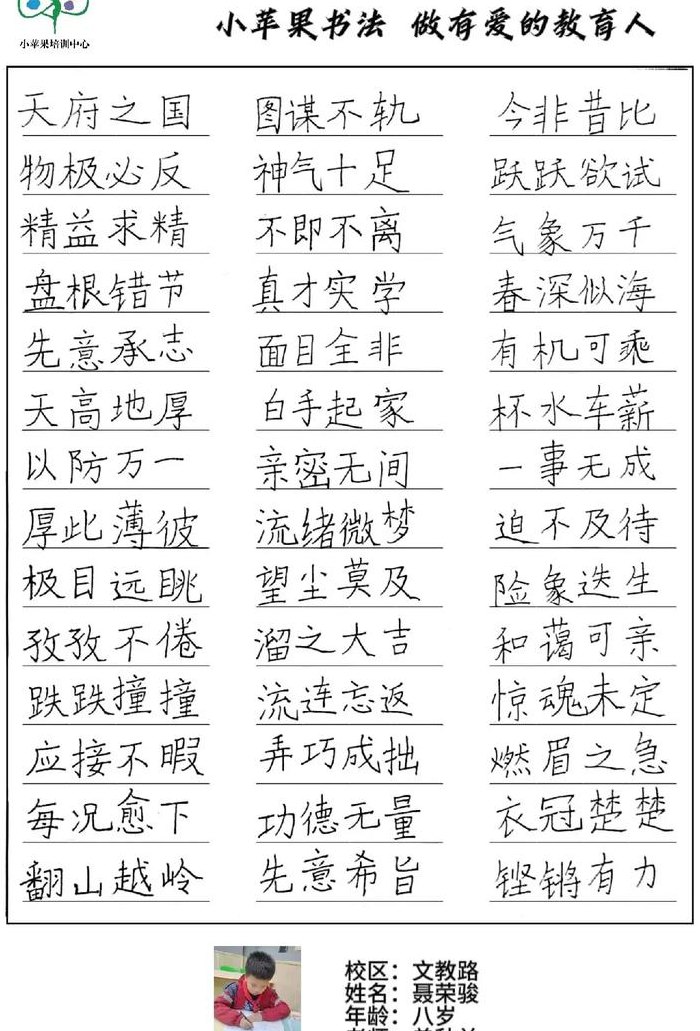 小苹果培训中心
小苹果书法 做有爱的教育人
天府之国 图谋不轨 今非昔比
物极必反 神气十足 跃跃欲试
精益求精 不即不离 气象万千
盘根错节 真才实学 春深似海
先意承志 面目全非 有机可乘
天高地厚 白手起家 杯水车薪
以防万一 亲密无间 一事无成
厚此薄彼 流绪微梦 迫不及待
极目远眺 望尘莫及 险象迭生
孜孜不倦 溜之大吉 和蔼可亲
跌跌撞撞 流连忘返 惊魂未定
应接不暇 弄巧成拙 燃眉之急
每况愈下 功德无量 衣冠楚楚
翻山越岭 先意希旨 铿锵有力
校区：文教路
姓名：聂荣骏
年龄：八岁